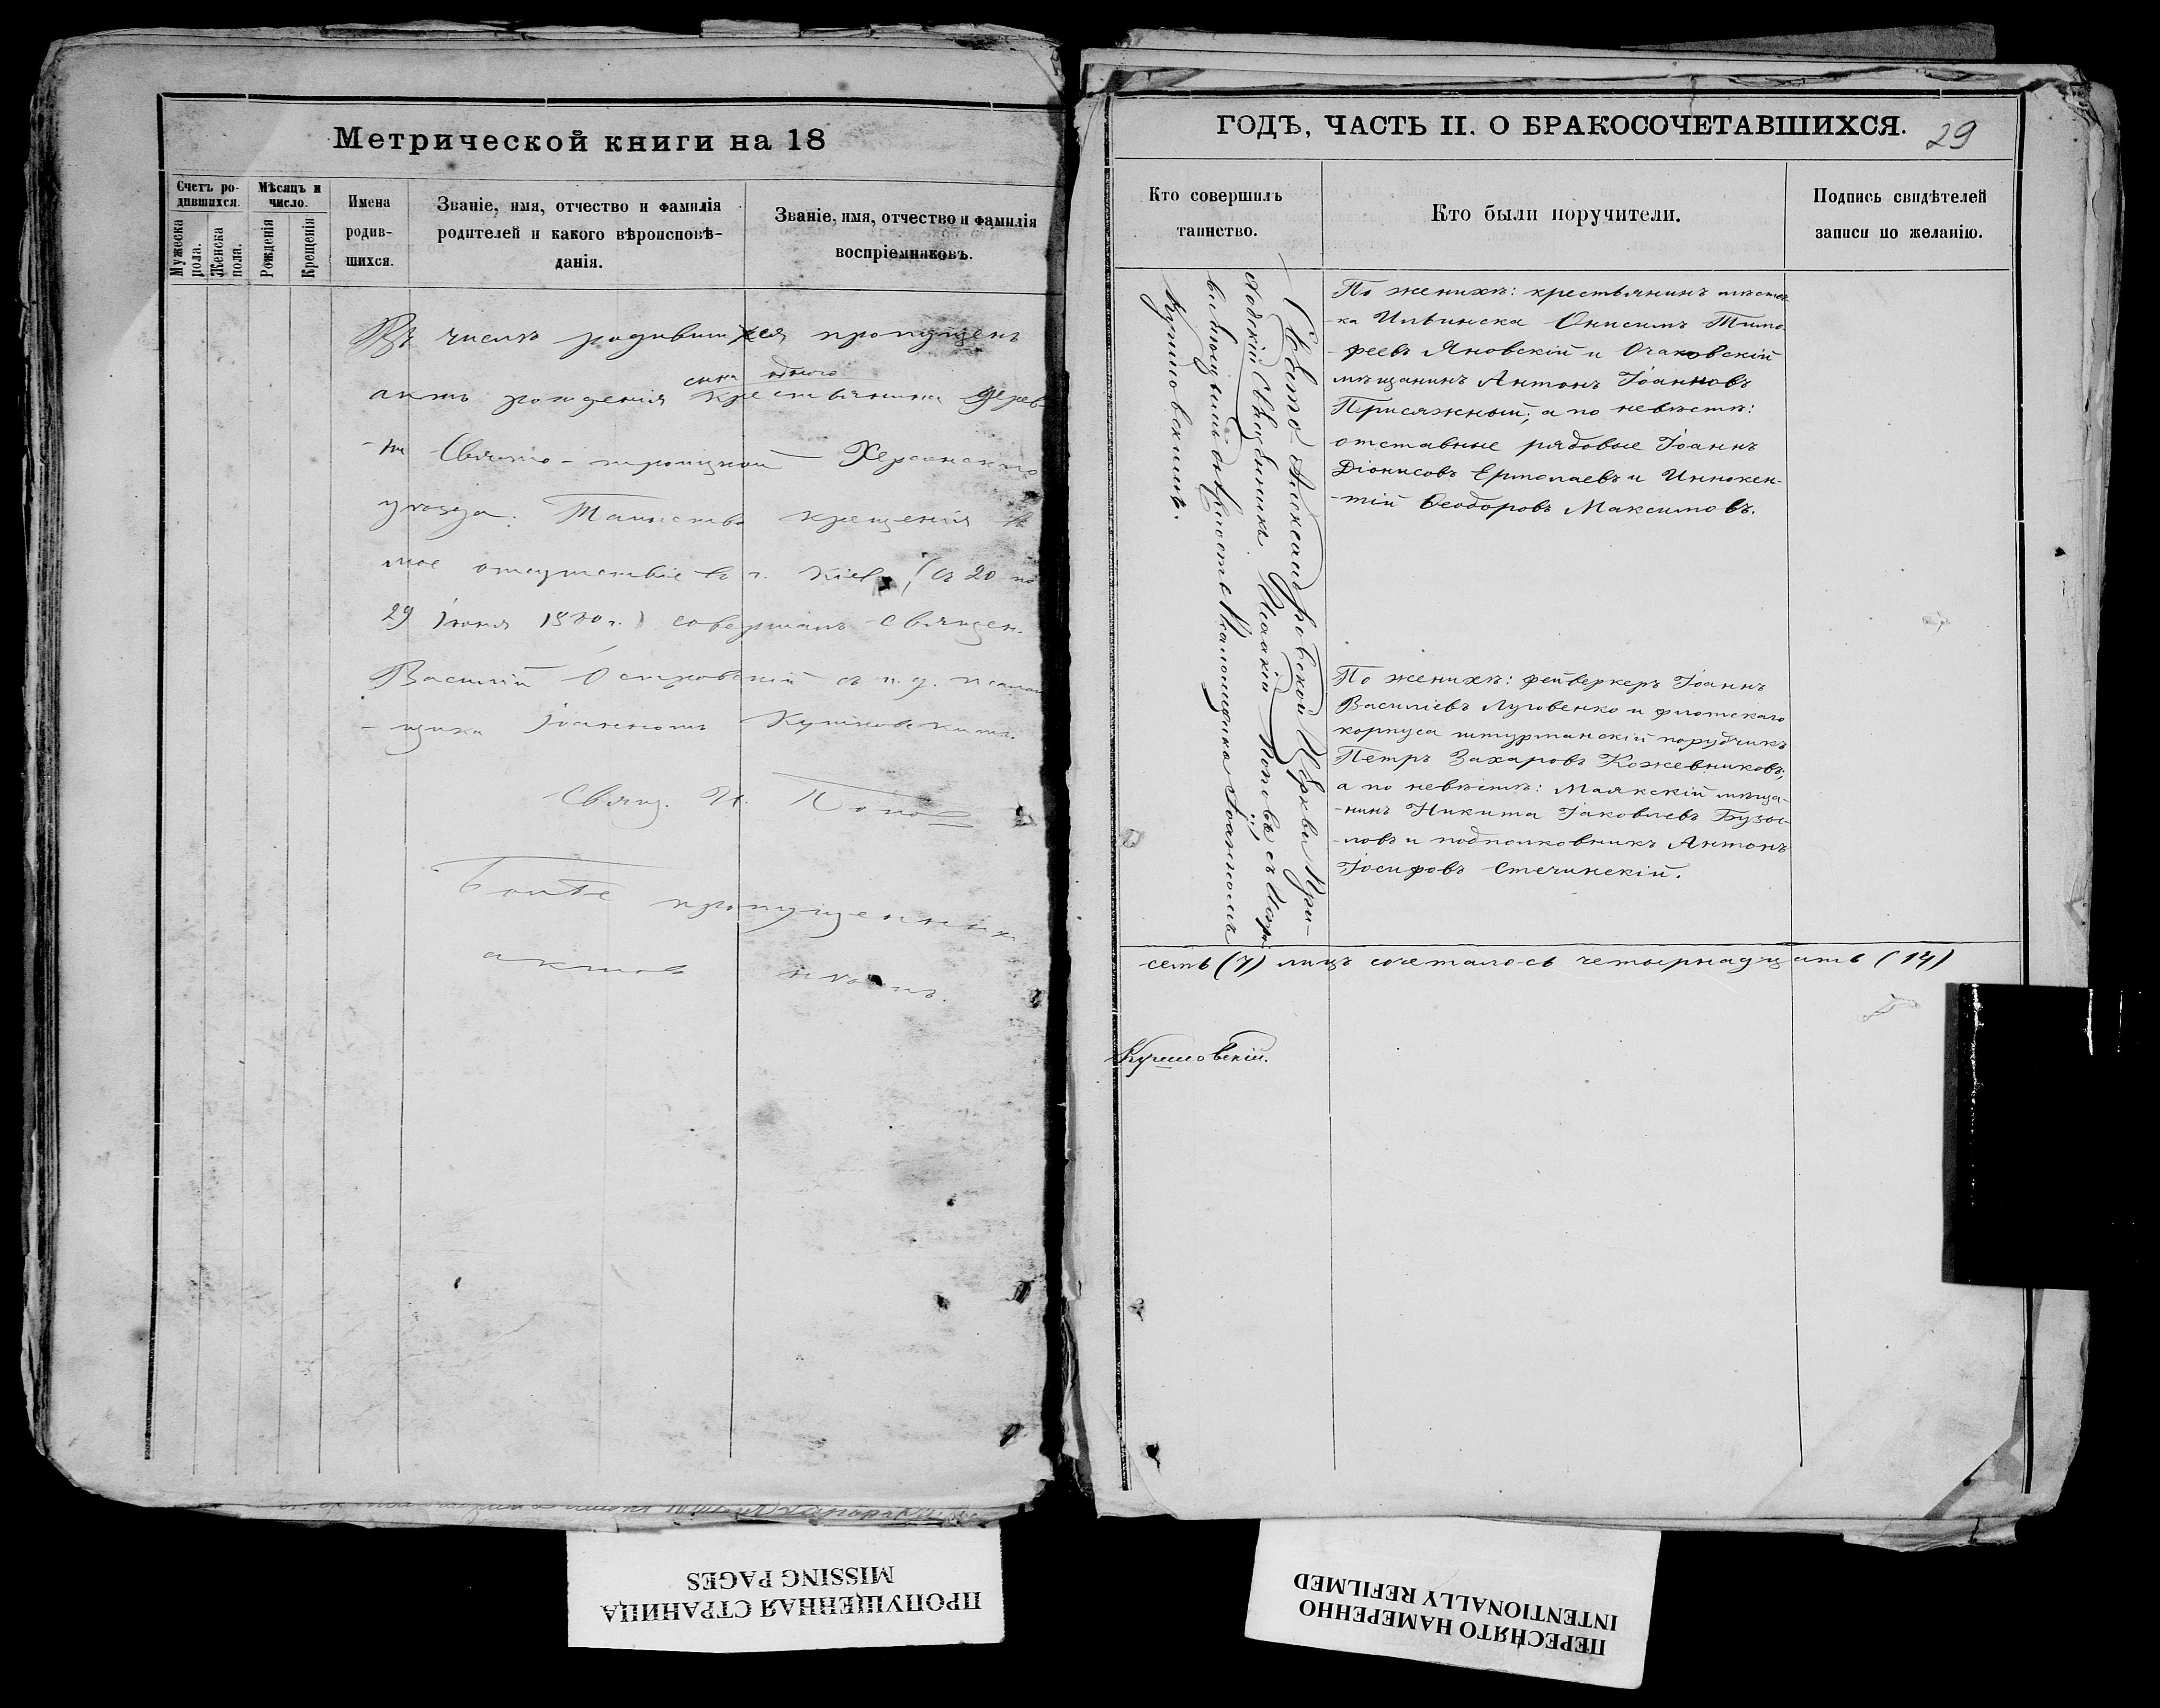 Метрической книги на 18
Счетъ ро-
дившихся.
Мѣсяцъ и
число.
Мужеска
пола.
Женска
пола.
Рожденія
Крещенія
Имена
родив-
шихся.
Званіе, имя, отчество и фамилія
родителей и какого вѣроисповѣ-
данія.
Званіе, имя, отчество и фамилія
воспріемниковъ.
Въ числѣ родившихся пропущенъ
сына
актъ рожденія крестьянина дерев-
-ни Свято-троицкой Херсонскаго
уѣзда. Таинство крещенія въ
мое отсутствіе въ г. Кіевѣ (съ 20 по
29 Іюня 1880 г.) совершалъ священ.
Василій Островскій съ и. д. псалом-
-щика Іоанномъ
Свящ. И. Поповъ
Болѣе пропущенныхъ
актовъ нѣтъ.
ГОДЪ, ЧАСТЬ II. О БРАКОСОЧЕТАВШИХСЯ.
29
Кто совершилъ
таинство.
Кто были поручители.
Подпись свидѣтелей
записи по желанію.
Свято-Александровской Церкви При-
ходскій Священникъ Исаакій Поповъ съ испра-
вляющимъ должность Псаломщика Іоанномъ
По женихѣ: крестьянинъ мѣстеч-
-ка Ильинска Онисимъ Тимо-
-феевъ Яновскій и Очаковскій
мѣщанинъ Антонъ Іоанновъ
Присяжный; а по невѣстѣ:
отставные рядовые Іоаннъ
Діонисовъ Ермолаевъ и Иннокен-
-тій Ѳеодоровъ Максимовъ.
По женихѣ: фейверкеръ Іоаннъ
Василіевъ Луговенко и флотскаго
корпуса штурманскій поручикъ
Петръ Захаровъ Кожевниковъ;
а по невѣстѣ: Маякскій мѣща-
-нинъ Никита Іаковлевъ
и подполковникъ Антонъ
Іосифовъ Стечинскій.
семь (7) лицъ сочеталось четырнадцать (14)
ПРОПУЩЕННАЯ СТРАНИЦА
MISSING PAGES
ПЕРЕСНЯТО НАМЕРЕННО
INTENTIONALLY REFILMED